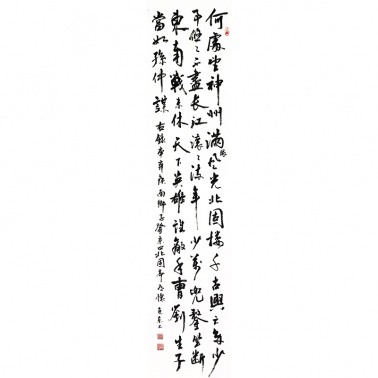 何處望神州滿眼風光北固樓千古興亡多少
事悠々不盡長江滾々流年少萬兜鍪坐斷
東南戰未休天下英雄誰敵手曹劉生子
當如孫仲謀 右錄辛棄疾南鄉子登京口北固亭有懷